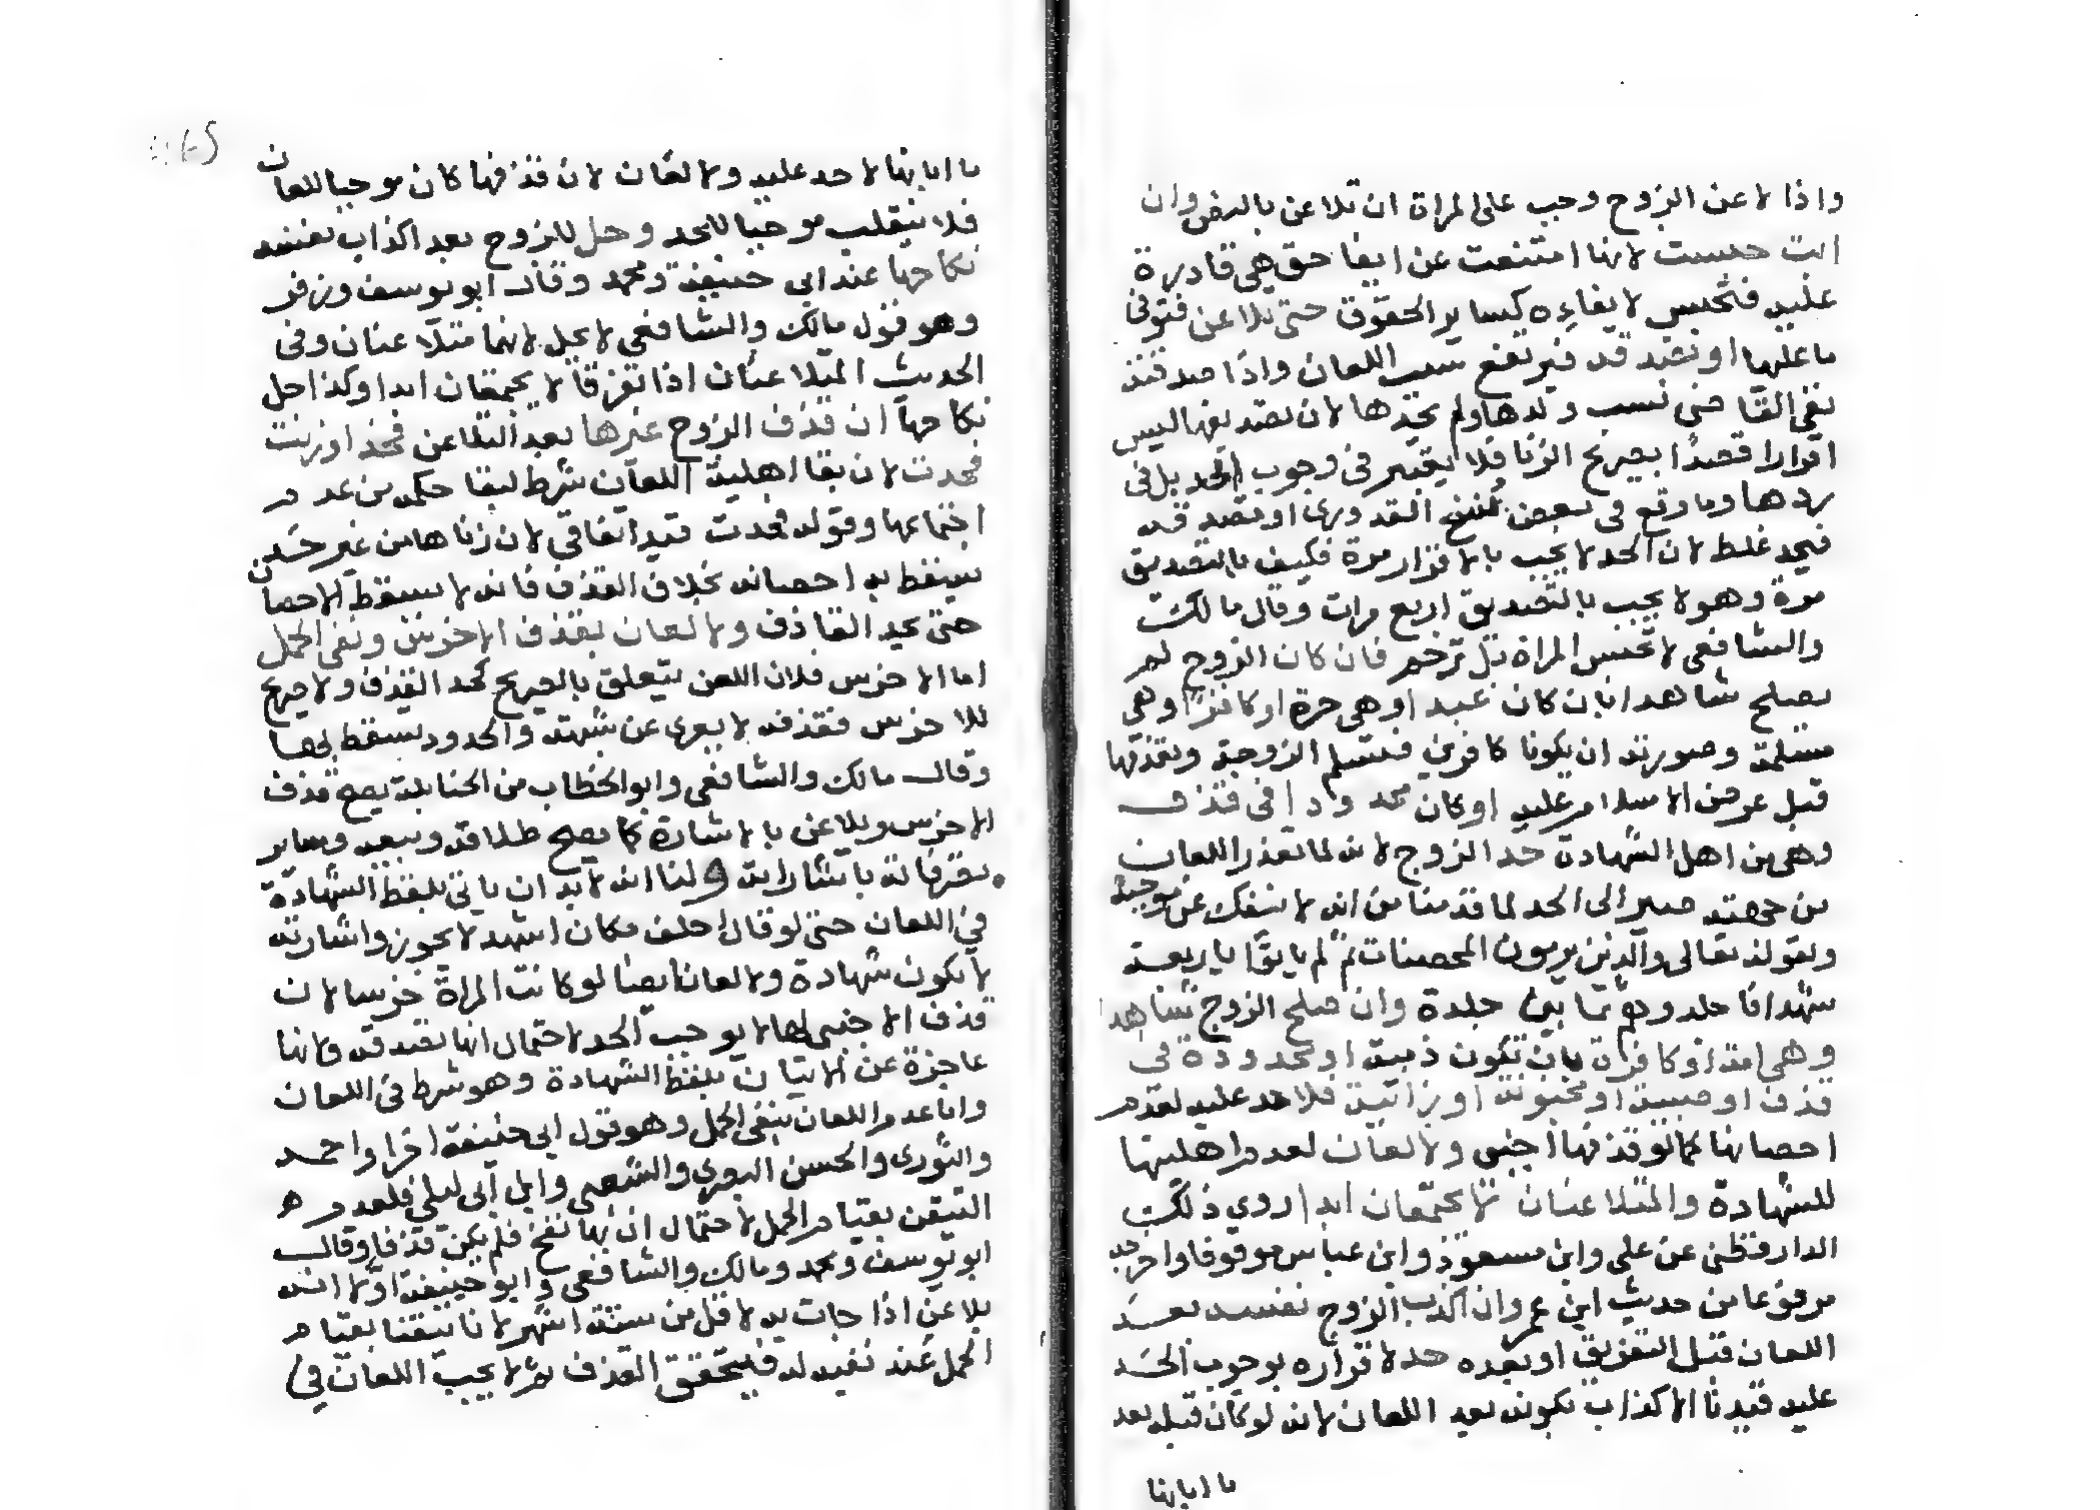 واذا لاعن الزوج وجب على المراة ان تلاعن بالنص وان
ابت حبست لانها امتنعت عن ايفا حق هي قادرة
عليه فتحبس لايفاءه كساير الحقوق حتى تلاعن فتوفى
ما عليها او تصدقه فيرتفع سبب اللعان واذا صدقته
نفى القا حتى نسب ولدها ولم يحدها لان تصديقها ليس
اقرارا قصدًا بصريح الزنا فلا يعتبر في وجوب الحد بل في
ردها وما وقع في بعض نسخ القدوري او تصدقه
فتحد غلط لان الحد لا يجب بالاقرار مرة فكيف بالتصديق
مرة وهو لا يجب بالتصديق اربع مرات وقال مالك
والشافعي لا تحبس المراة بل ترجم فان كان الزوج لم
يصلح شاهدا بان كان عبدا وهي حرة او كافرًا وهي
مسلمة وصورته ان يكونا كافرين فتسلم الزوجة ويقذفها
قبل عرض الاسلام عليه او كان محدودا في قذف
وهي من اهل الشهادة حد الزوج لانه لما تعذر اللعان
من جهته صير الى الحد لما قدمنا من انه لا ينفك عن موجبه
ولقوله تعالى والذين يرمون المحصنات ثم لم ياتوا باربعة
شهدا فاجلدوهم ثمانين جلدة وان صلح الزوج شاهدا
وهي امة او كافرة بان تكون ذمية او محدودة في
قذف او صبية او مجنونة او زانية فلا حد عليه لعدم
احصانها كما لو قذفها اجنبي ولا لعان لعدم اهليتها
للشهادة والمتلاعنان لا يجتمعان ابدا روي ذلك
الدارقطني عن علي وابن مسعود وابن عباس موقوفا واخرجه
مرفوعا من حديث ابن عمر وان اكذب الزوج نفسه بعد
اللعان قبل التفريق او بعده حد لاقراره بوجوب الحد
عليه قيدنا الاكذاب بكونه بعد اللعان لانه لو كان قبله بعد
ما ابانها
ما ابانها لا حد عليه ولا لعان لان قذفها كان موجبا للعان
فلا ينقلب موجبا للحد وحل للزوج بعد اكذاب نفسه
نكاحها عند ابي حنيفة ومحمد وقال ابو يوسف وزفر
وهو قول مالك والشافعي لا يحل لانهما متلاعنان وفي
الحديث المتلاعنان اذا تفرقا لا يجتمعان ابدا وكذا حل
نكاحها ان قذف الزوج غيرها بعد التلاعن فحد او زنت
فحدت لان بقا اهلية اللعان شرط لبقا حكمه من عدم
اجتماعها وقوله فحدت قيد اتفاقي لان زناها من غير حد
يسقط به احصانه بخلاف القذف فانه لا يسقط الاحصان
حتى يحد القاذف ولا لعان بقذف الاخرس ونفى الحمل
اما الاخرس فلان اللعن يتعلق بالصريح كحد القذف ولا صريح
للاخرس فقذفه لا يعرى عن شبهة والحدود تسقط بها
وقال مالك والشافعي وابو الخطاب من الحنابلة يصح قذف
الاخرس ويلاعن بالاشارة كما يصح طلاقه وبيعه وساير
تصرفاته باشارته ولنا انه لا بد ان ياتي بلفظ الشهادة
في اللعان حتى لو قال احلف مكان اشهد لا يجوز واشارته
لا تكون شهادة ولا لعان ايضا لو كانت المراة خرسا لان
قذف الاجنبي لها لا يوجب الحد لاحتمال انها تصدقه ولانها
عاجزة عن الاتيان بلفظ الشهادة وهو شرط في اللعان
واما عدم اللعان بنفى الحمل وهو قول ابي حنيفة اخرا واحمد
والثوري والحسن البصري والشعبي وابن ابي ليلى فلعدم
التيقن بقيام الحمل لاحتمال ان بها نفخ فلم يكن قذفا وقال
ابو يوسف ومحمد ومالك والشافعي وابو حنيفة اولا انه
يلاعن اذا جات به لاقل من ستة اشهر لانا تيقنا بقيام
الحمل عند نفيه له فيتحقق القذف ثم لا يجب اللعان في